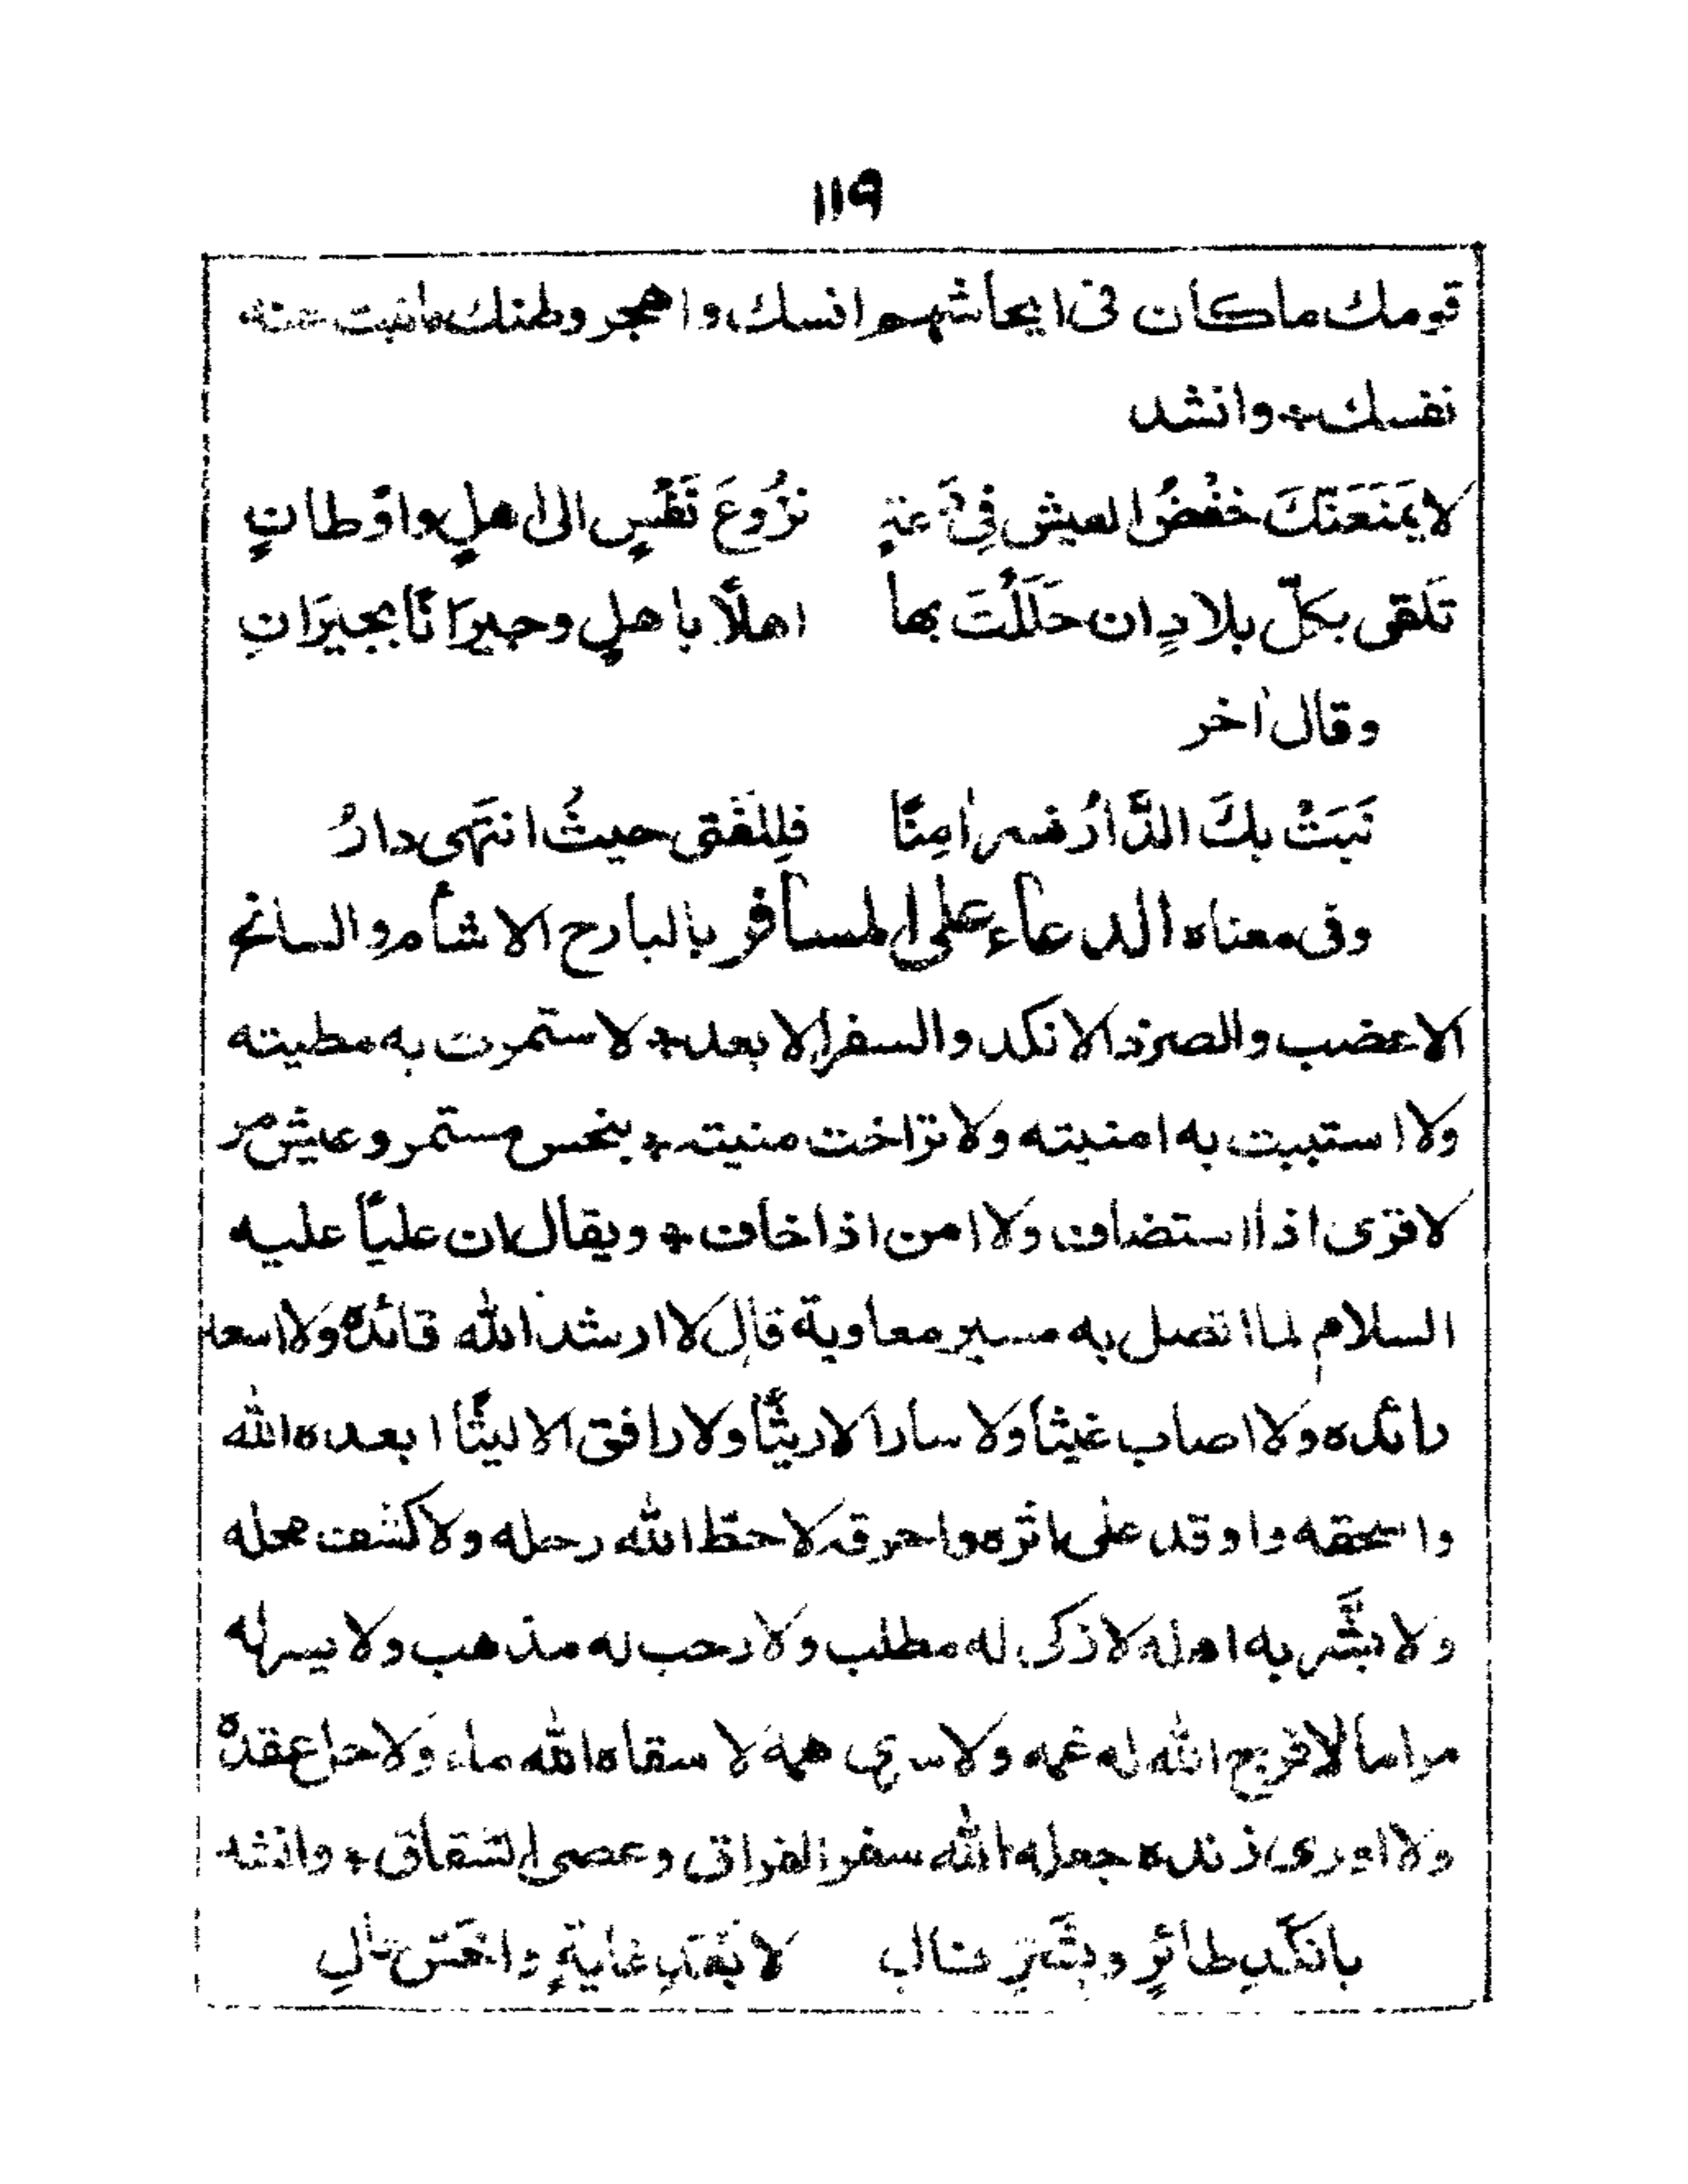 ١١٩
قومك ماكان فى ايحاشهم انسك واهجر وطنك مانبت عنه
نفسك * وانشد
لا يَمنَعَنّكَ خَفْضُ العيش فِي دَعَةٍ نزُوعَ نَفْسٍ الى اهلٍ واوْطانٍ
تَلقى بكلّ بلادٍ ان حَلَلْتَ بها اهلًا باهلٍ وجيرَانًا بجيرَانِ
وقال اٰخر
نَبَتْ بكَ الدَّارُ فسر اٰمِنًا فلِلْفَتى حيثُ انتَهى دارُ
وفى معناه الدعاء على المسافر بالبارح الاشأم والسانح
الاعضب والصرد الانكد والسفر الابعد * لا ستمرت به مطيته
ولا استبت به امنيته ولا تراخت منيته * بنحس مستمر وعيش مر
لا قرى اذا استضاف ولا امن اذا خاف * ويقال ان عليّا عليه
السلام لما اتصل به مسير معاوية قال لا ارشد الله قائدهٗ ولا اسعد
رائده ولا اصاب غيثا ولا سار الا ريثًا ولا رافق الا ليثًا ابعده الله
واسحقه واوقد على اثره واحرقه لا حط الله رحله ولا كشف محله
ولا بشّر به اهله لا زكى له مطلب ولا رحب له مذهب ولا يسر له
مراما لا فرج الله له غمه ولا سرى همه لا سقاه الله ماء ولا حل عقدهٗ
ولا اورى زنده جعله الله سفر الفراق وعصى الشقاق * وانشد
بانكَدِ طائرٍ وبشَرِّ فال لا بْعَدِ غايةٍ واخَسّ حالِ